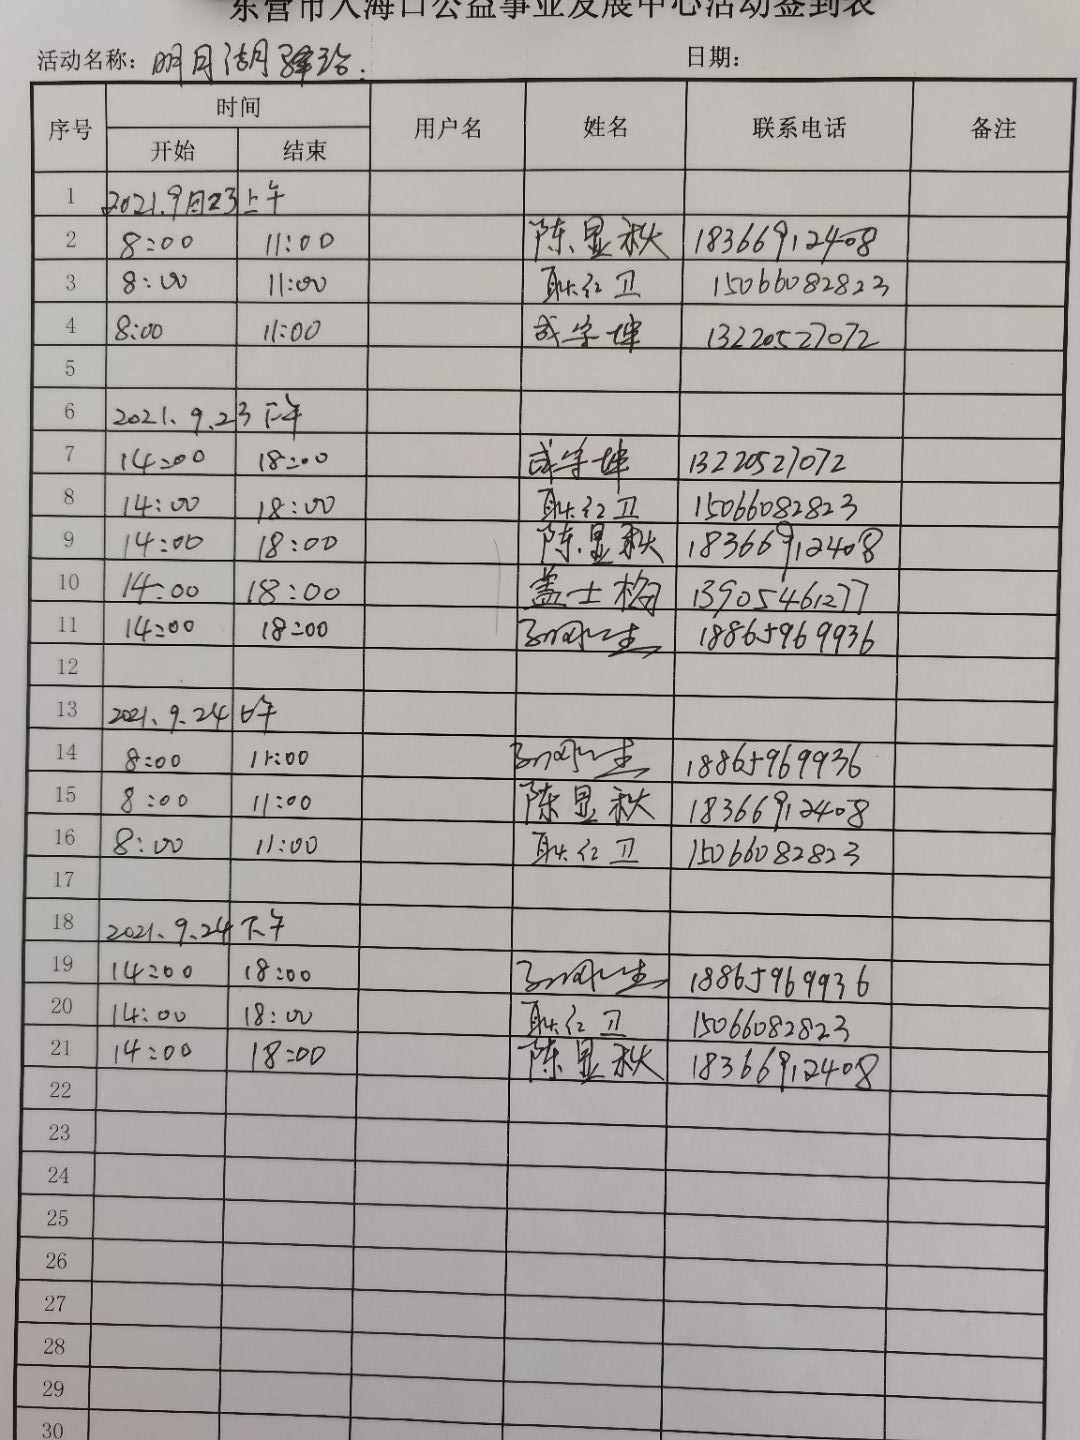 东营市入海口公益事业发展中心活动签到表
活动名称: 明月湖驿站. 日期:
序号 时间 用户名 姓名 联系电话 备注
开始 结束
1 2021.9月23上午
2 8:00 11:00 陈显秋 18366912408
3 8:00 11:00 耿红卫 15066082823
4 8:00 11:00 成学坤 13220527072
5
6 2021.9.23下午
7 14:00 18:00 成学坤 13220527072
8 14:00 18:00 耿红卫 15066082823
9 14:00 18:00 陈显秋 18366912408
10 14:00 18:00 盖士梅 13905461277
11 14:00 18:00 18865969936
12
13 2021.9.24上午
14 8:00 11:00 18865969936
15 8:00 11:00 陈显秋 18366912408
16 8:00 11:00 耿红卫 15066082823
17
18 2021.9.24下午
19 14:00 18:00 18865969936
20 14:00 18:00 耿红卫 15066082823
21 14:00 18:00 陈显秋 18366912408
22
23
24
25
26
27
28
29
30